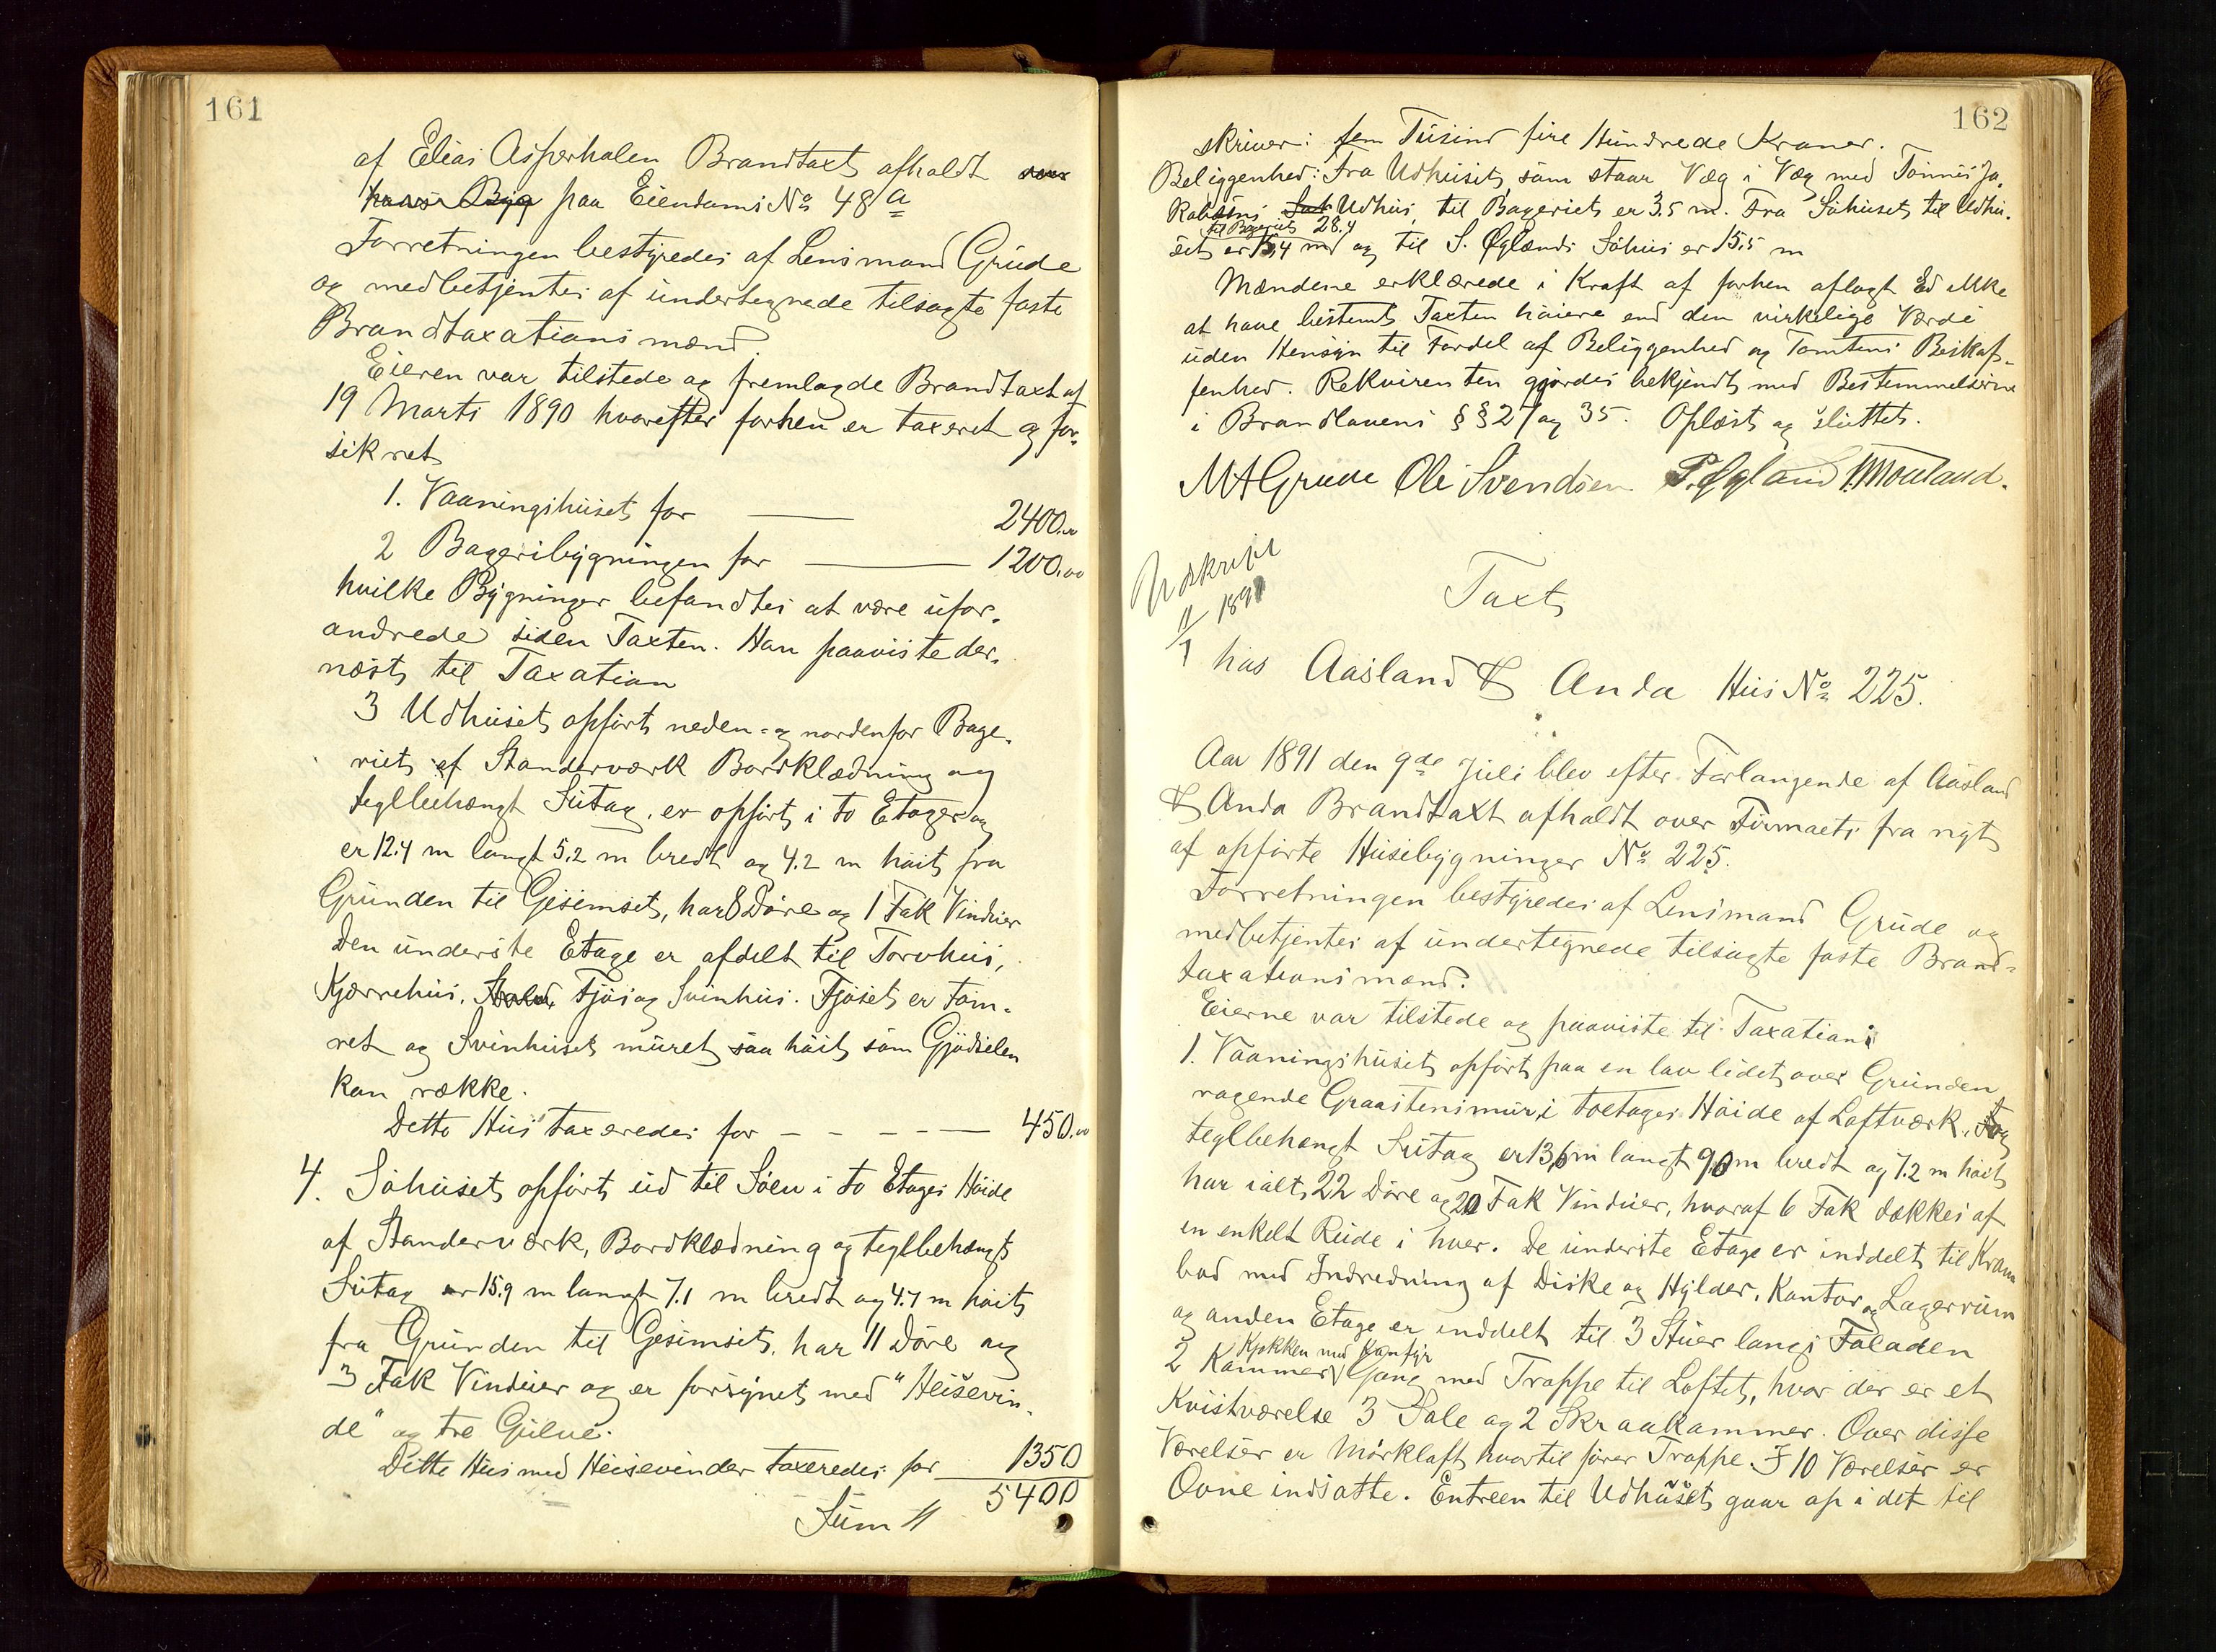 161
af Elias Asperholen Brandtaxt afholdt over
hans Byg paa Eiendoms No 48 a
Forretningen bestyredes af Lensmand Grude
og medbetjentes af undertegnede tilsagte faste
Brandtaxations mænd.
Eieren var tilstede og fremlagde Brandtaxt af
19 Marts 1890 hvorefter forhen er taxeret og for-
sikret
1. Vaaningshuset for — 2400.00
2 Bageribygningen for — 1200.00
hvilke Bygninger befandtes at være ufor-
andrede siden Taxten. Han paaviste der-
næst til Taxation
3 Udhuset opført neden- og nordenfor Bage-
riet af Standerværk Bordklædning og
teglbehængt Sutag, er opført i to Etager og
er 12.4 m langt 5.2 m bredt og 4.2 m høit fra
Grunden til Gesimset, har 8 Døre og 1 Fak Vinduer
Den underste Etage er afdelt til Torvhus,
Kjærrehus, Stald, Fjøs og Svinhus. Fjøset er tøm-
ret og Svinhuset muret saa høit som Gjødselen
kan række.
Dette Hus taxeredes for - - - - — 450.00
4. Søhuset opført ud til Søen i to Etages Høide
af Standerværk, Bordklædning og teglbehængt
Sutag er 15.9 m langt 7.1 m bredt og 4.7 m høit
fra Grunden til Gesimset, har 11 Døre og
3 Fak Vinduer og er forsynet med "Heisevin-
de" og tre Gulve.
Dette Hus med Heisevinder taxeredes for 1350
Sum 5400
162
skriver: fem Tusind fire Hundrede Kroner.
Beliggenhed: Fra Udhuset, som staar Væg i Væg med Tønnes Ja-
kobsens Udhus, til Bageriet er 3.5 m. Fra Søhuset til Udhu-
til Bageriet 28.4
set er 15,4 m og til S. Øglænds Søhus er 15.5 m
Mændene erklærede i Kraft af forhen aflagt Ed ikke
at have bestemt Taxten høiere end den virkelige Værdi
uden Hensyn til Fordel af Beliggenhed og Tomtens Beskaf-
fenhed. Rekvirenten gjordes bekjendt med Bestemmelserne
i Brandlovens §§ 27 og 35. Oplæst og sluttet.
MAGrude Ole Svendsen P. Øgland T. Mouland.
Udskrift
11/7 1891
Taxt
hos Aasland & Anda Hus No 225.
Aar 1891 den 9de Juli blev efter Forlangende af Aasland
& Anda Brandtaxt afholdt over Firmaets fra nyt
af opførte Husebygninger No 225.
Forretningen bestyredes af Lensmand Grude og
medbetjentes af undertegnede tilsagte faste Brand-
taxationsmænd.
Eierne var tilstede og paaviste til Taxation:
1. Vaaningshuset opført paa en lav lidet over Grunden
ragende Graastensmur, i toetages Høide af Loftværk, og
teglbehængt Sutag er 13,6 m langt 9,0 m bredt og 7.2 m høit
har ialt 22 Døre og 20 Fak Vinduer, hvoraf 6 Fak dækkes af
en enkelt Rude i hver. De underste Etage er inddelt til Kram
bod med Indredning af Diske og Hylder, Kontor og Lagerrum
og anden Etage er inddelt til 3 Stuer langs Facaden
Kjøkken med Komfyr
2 Kammer, Gang med Trappe til Loftet, hvor der er et
Kvistværelse 3 Sale og 2 Skraakammer. Over disse
Værelser er Mørkloft hvortil fører Trappe. I 10 Værelser er
Ovne indsatte. Entreen til Udhuset gaar op i det til